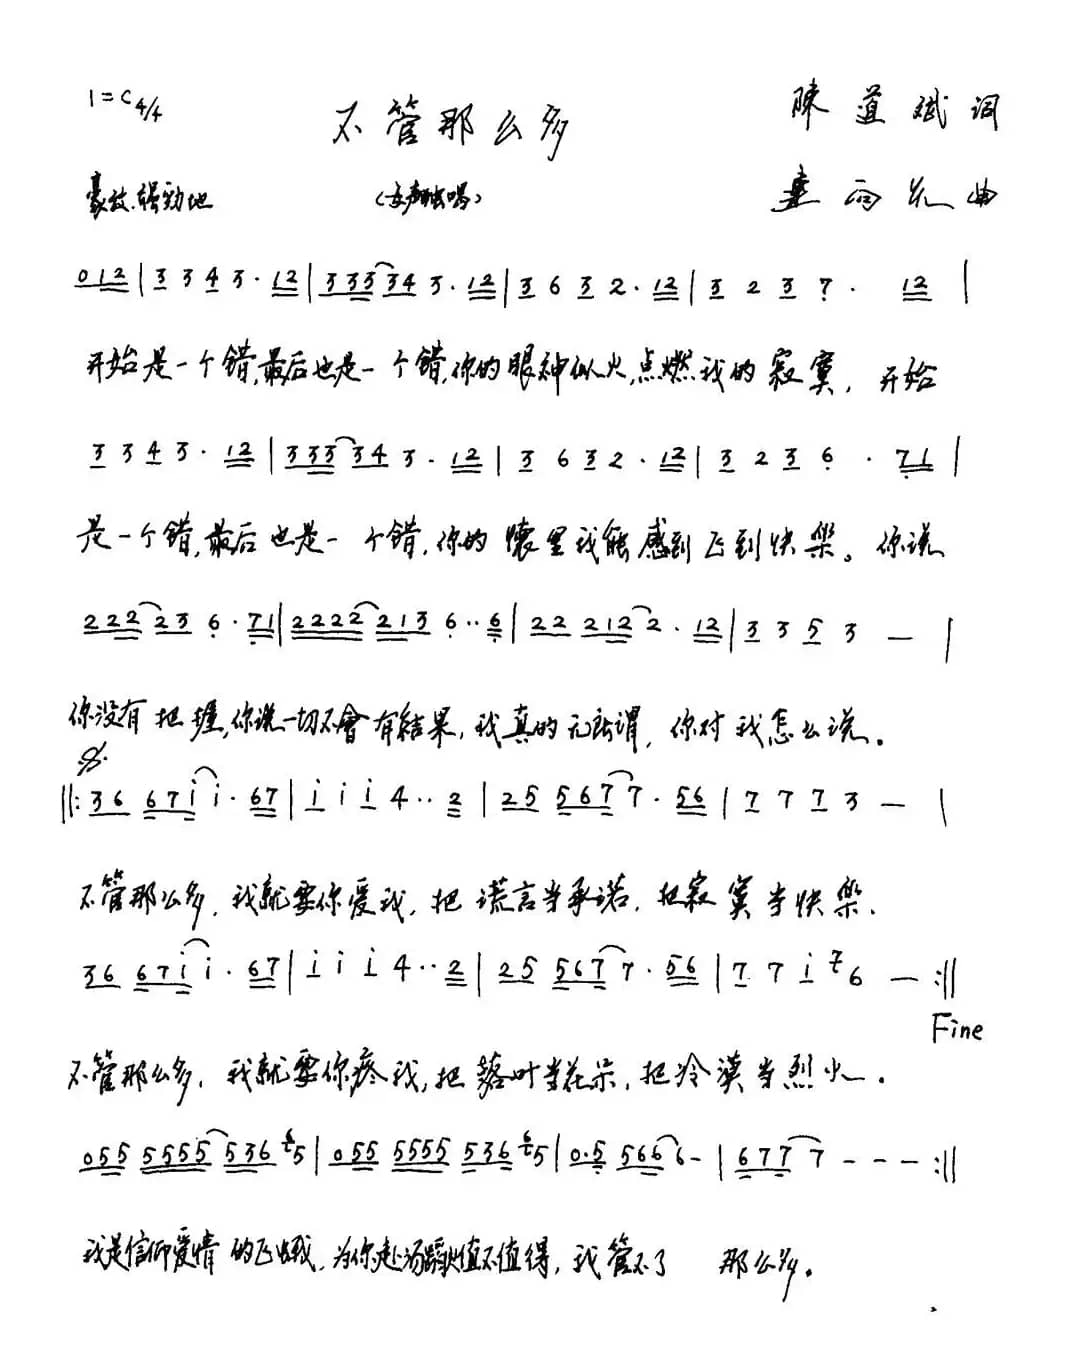 1=C 4/4
不管那么多
陳道斌词
豪放.强劲地
(女声独唱)
向允曲
012|3 3 4 3·12|333 34 3·12|3 6 3 2·12|3 2 3 7· 12|
开始是一个错,最后也是一个错,你的眼神似火,点燃我的寂寞,开始
3 3 4 3·12|333 34 3·12|3 6 3 2·12|3 2 3 6·71|
是一个错,最后也是一个错,你的懷里我能感到飞到快樂。你说
222 23 6·71|2222 213 6··6|22 212 2·12|3 3 5 3 —|
你没有把握,你说一切不會有结果,我真的无所谓,你对我怎么说。
𝄋
‖:36 67i i·67|i i i 4··2|25 567 7·56|7 7 7 3 —|
不管那么多,我就要你爱我,把谎言当承诺,把寂寞当快樂.
36 67i i·67|i i i 4··2|25 567 7·56|7 7 i 7 6 —:‖
Fine
不管那么多,我就要你疼我,把落叶当花朵,把冷漠当烈火.
055 5555 536 6 5|055 5555 536 6 5|0·5 566 6-|677 7 - - -:‖
我是信仰爱情的飞蛾,为你赴汤蹈火值不值得,我管不了 那么多。